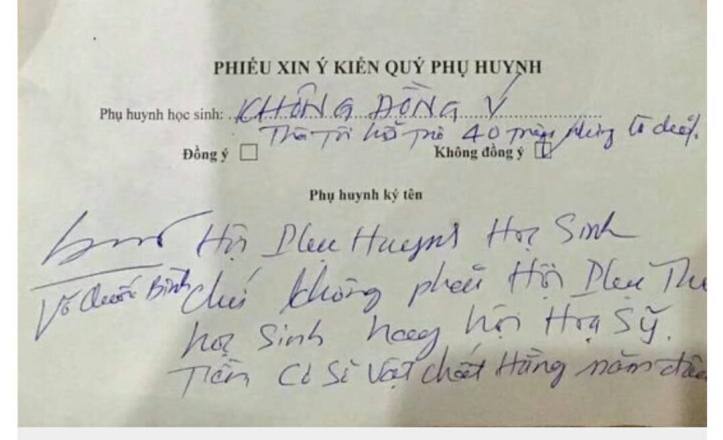 PHIẾU XIN Ý KIẾN QUÝ PHỤ HUYNH
Phụ huynh học sinh: KHÔNG ĐỒNG Ý
Thà Tôi hỗ trợ 40 triệu
Đồng ý ☐ Không đồng ý ☐
Phụ huynh ký tên
Hội Phụ Huynh Học Sinh
Võ Quốc Bình
chứ không phải Hội Phụ Thu
học Sinh hay hội Hoạ Sỹ.
Tiền Cơ Sở Vật chất Hằng năm đâu